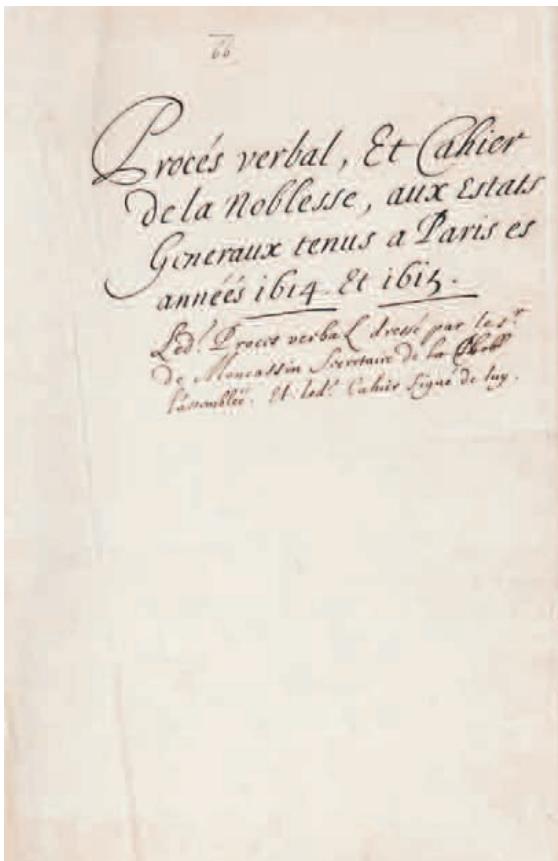 66
Procés verbal, Et Cahier
de la Noblesse, aux Estats
Generaux tenus a Paris es
années 1614. Et 1615.
Led.t Proces verbal dressé par le s.r
de Moncassin Secretaire de la
l'assemblée. Et led.t Cahier signé de luy.